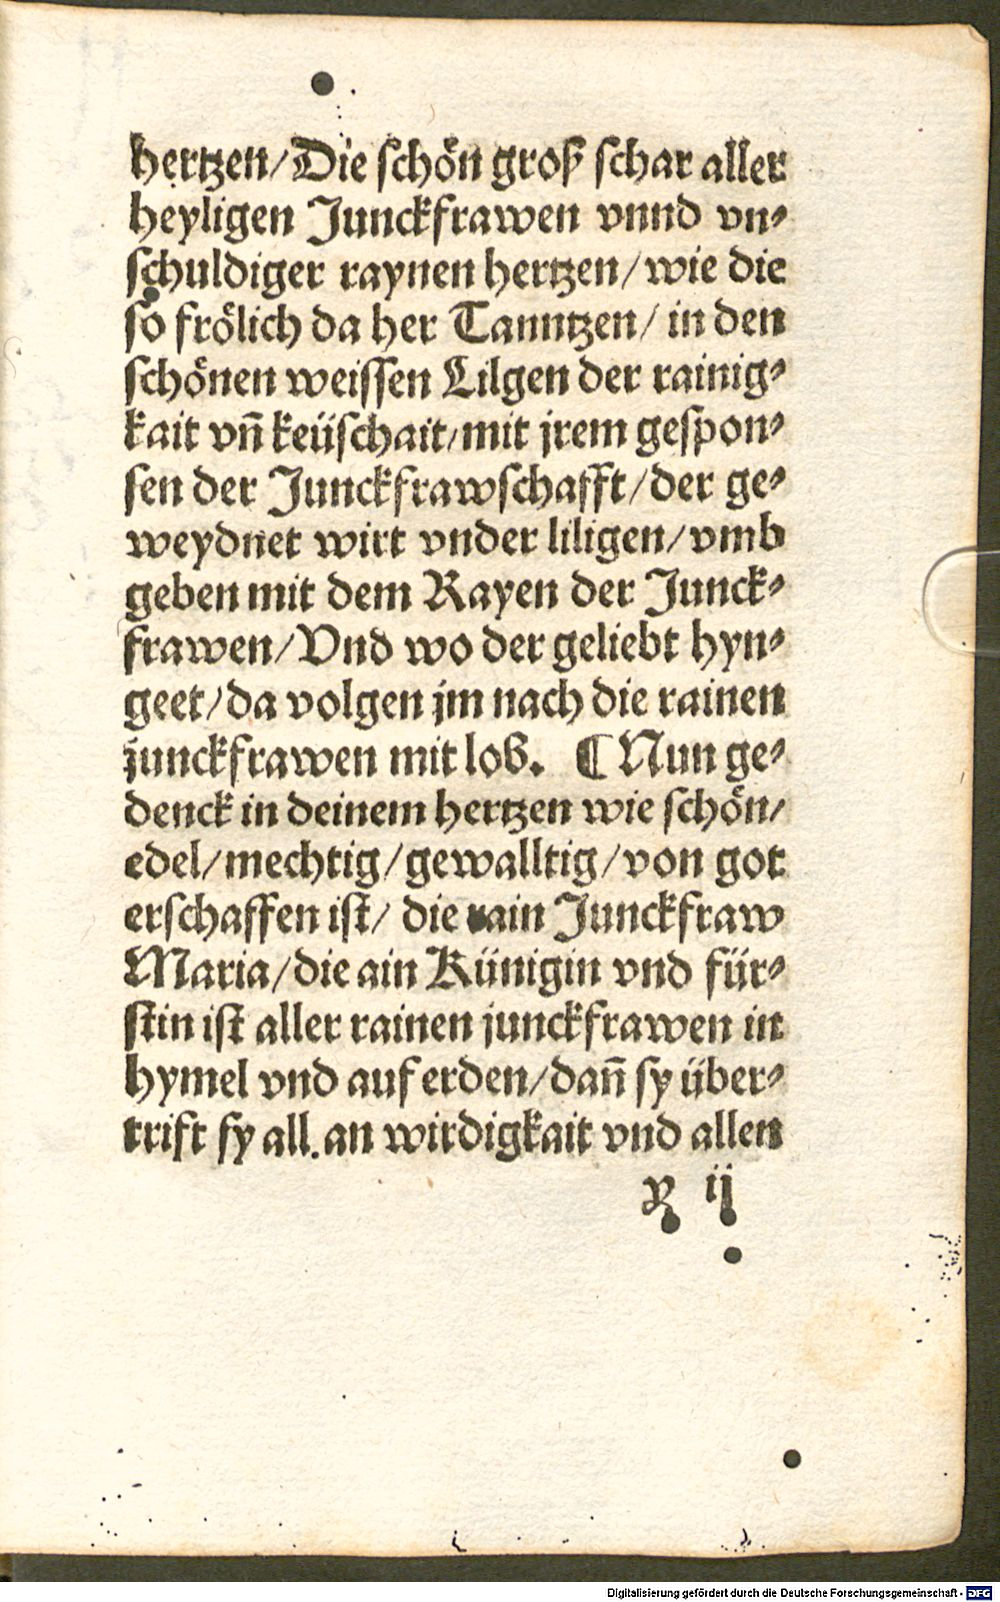 hertzen/Die schön groß schar aller
heyligen Junckfrawen vnnd vn⸗
schuldiger raynen hertzen/wie die
so frölich da her Tanntzen/in den
schönen weissen Lilgen der rainig⸗
kait vn̄ keüschait/mit jrem gespon⸗
sen der Junckfrawschafft/der ge⸗
weydnet wirt vnder liligen/vmb
geben mit dem Rayen der Junck⸗
frawen/Vnd wo der geliebt hyn⸗
geet/da volgen jm nach die rainen
junckfrawen mit lob. ¶ Nun ge⸗
denck in deinem hertzen wie schön/
edel/mechtig/gewalltig/von got
erschaffen ist/ die rain Junckfraw
Maria/die ain Künigin vnd für⸗
stin ist aller rainen junckfrawen in
hymel vnd auf erden/dan̄ sy über⸗
trift sy all.an wirdigkait vnd allen
y ij
Digitalisierung gefördert durch die Deutsche Forschungsgemeinschaft - DFG